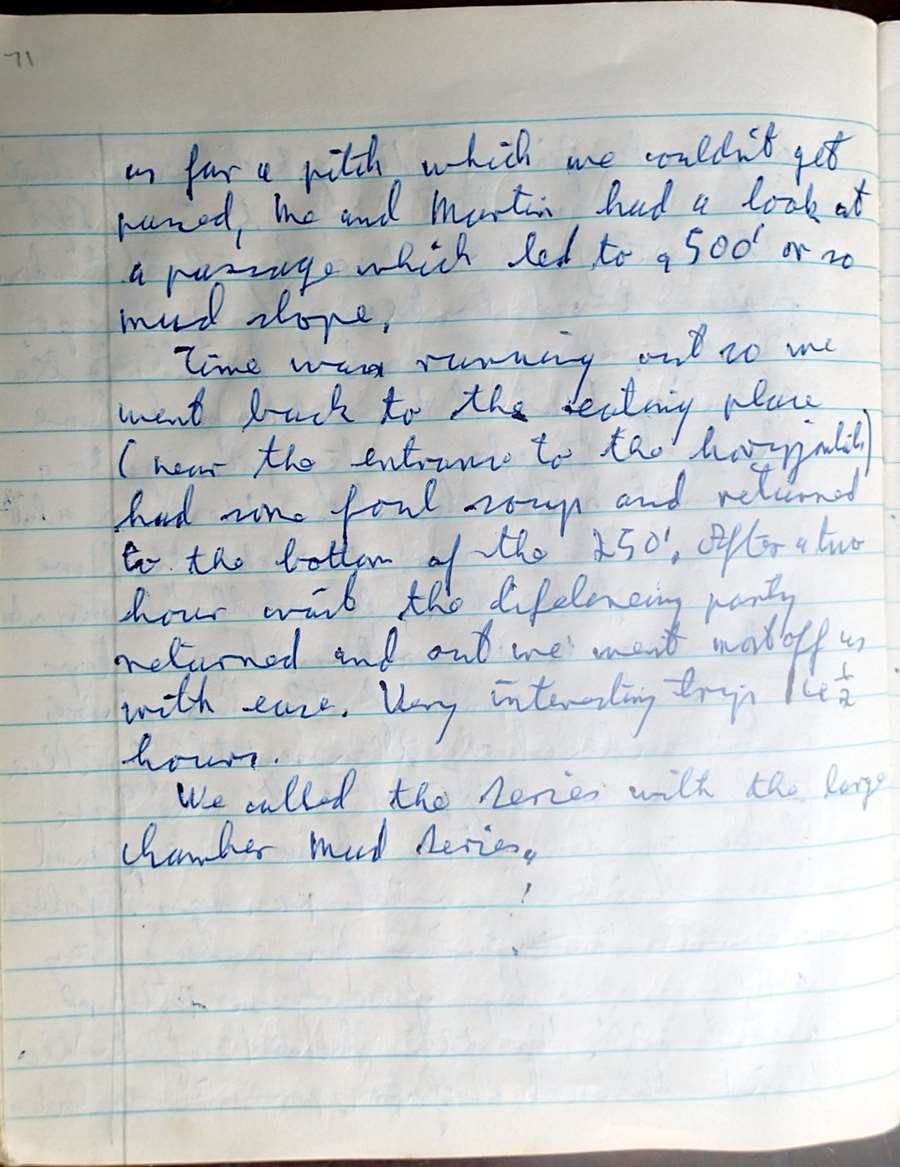 71
as far a pitch which we couldn't get
passed, Me and Martin had a look at
a passage which led to a 500' or so
mud slope.
Time was running out so we
went back to the eating place
(near the entrance to the
had some foul soup and returned
to the bottom of the 250'. After a two
hour wait the party
returned and out we went most off us
with ease. Very interesting trip ½
hours.
We called the series with the large
chamber Mud series.